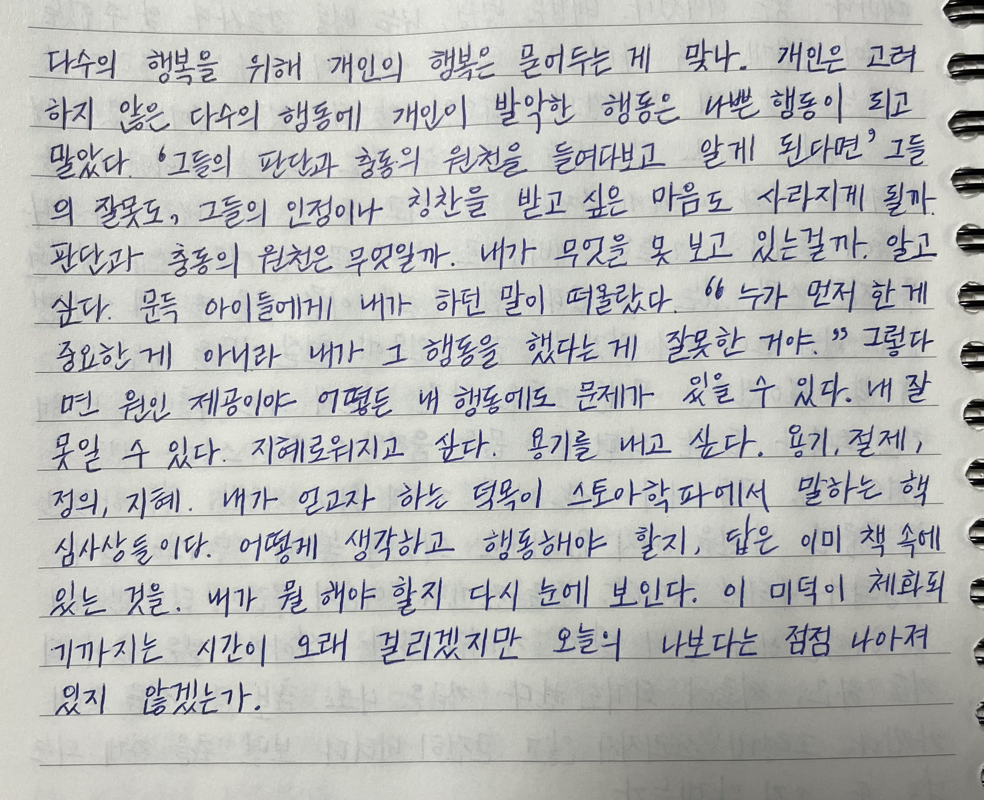 다수의 행복을 위해 개인의 행복은 묻어두는 게 맞나. 개인은 고려
하지 않은 다수의 행동에 개인이 발악한 행동은 나쁜 행동이 되고
말았다. '그들의 판단과 충동의 원천을 들여다보고 알게 된다면' 그들
의 잘못도, 그들의 인정이나 칭찬을 받고 싶은 마음도 사라지게 될까.
판단과 충동의 원천은 무엇일까. 내가 무엇을 못 보고 있는걸까. 알고
싶다. 문득 아이들에게 내가 하던 말이 떠올랐다. "누가 먼저 한 게
중요한 게 아니라 내가 그 행동을 했다는 게 잘못한 거야." 그렇다
면 원인 제공이야 어떻든 내 행동에도 문제가 있을 수 있다. 내 잘
못일 수 있다. 지혜로워지고 싶다. 용기를 내고 싶다. 용기, 절제,
정의, 지혜. 내가 얻고자 하는 덕목이 스토아학파에서 말하는 핵
심사상들이다. 어떻게 생각하고 행동해야 할지, 답은 이미 책 속에
있는 것을. 내가 뭘 해야 할지 다시 눈에 보인다. 이 미덕이 체화되
기까지는 시간이 오래 걸리겠지만 오늘의 나보다는 점점 나아져
있지 않겠는가.